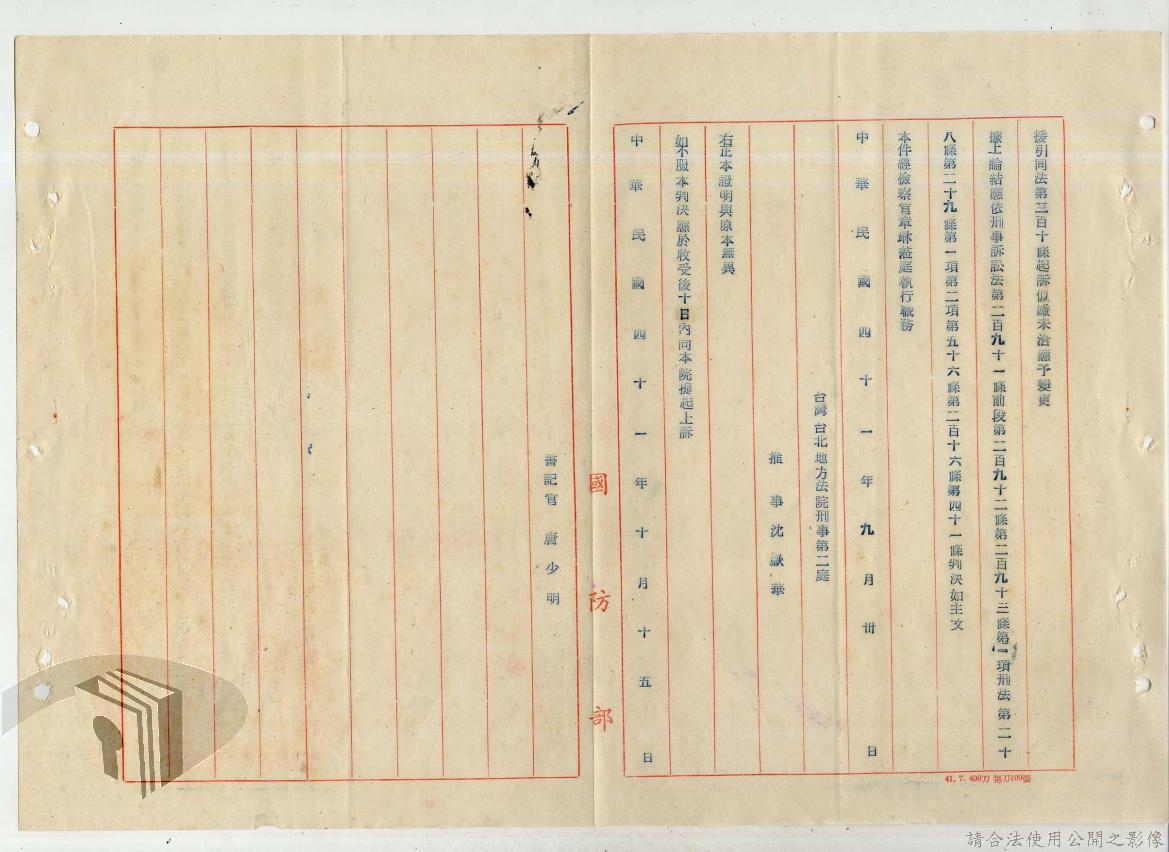 援引同法第三百十條起訴似嫌未洽應予變更
據上論結應依刑事訴訟法第二百九十一條前段第二百九十二條第二百九十三條第一項刑法第二十
八條第二十九條第一項第二項第五十六條第二百十六條第四十一條判決如主文
本件經檢察官章 蒞庭執行職務
中華民國四十一年九月卅日
台灣台北地方法院刑事第二庭
推事沈 華
右正本證明與原本無異
如不服本判決應於收受後十日內向本院提起上訴
中華民國四十一年十月十五日
書記官 唐少明
國防部
41. 7. 400刀 每刀100張
請合法使用公開之影像